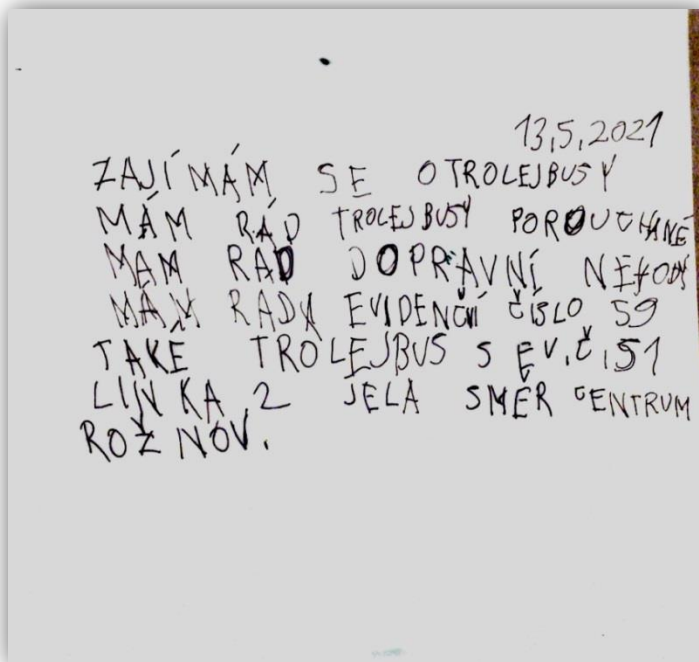 13,5,2021
ZAJÍMÁM SE O TROLEJBUSY
MÁM RÁD TROLEJBUSY POROUCHANÉ
MÁM RÁD DOPRAVNÍ NEHODY
MÁM RADY EVIDENČNÍ ČÍSLO 59
TAKE TROLEJBUS S EV.Č.51
LINKA 2 JELA SMĚR CENTRUM
ROŽNOV.